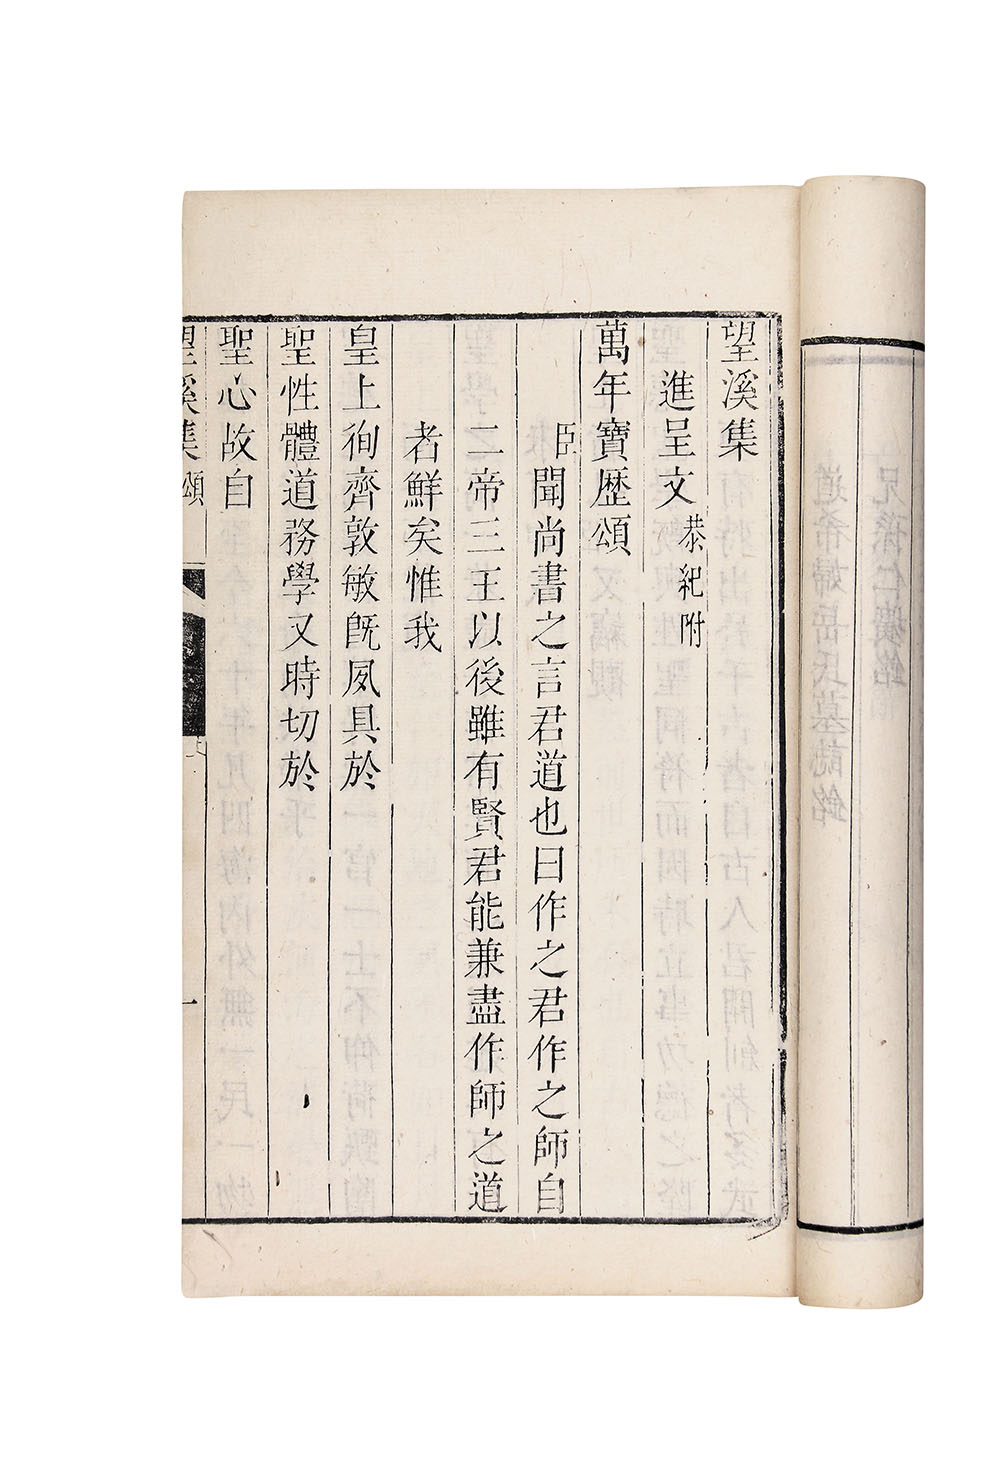 望溪集
進呈文 恭紀附
萬年寶歷頌
臣聞尚書之言君道也曰作之君作之師自
二帝三王以後雖有賢君能兼盡作師之道
者鮮矣惟我
皇上徇齊敦敏旣夙具於
聖性體道務學又時切於
聖心故自
望溪集 頌
一